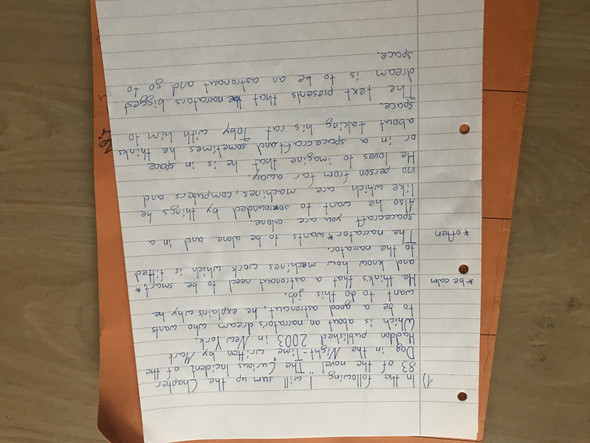 1) In the following I will sum up the Chapter
83 of the novel "The Curious Incident of the
Dog in the Night-Time" written by Mark
Haddon published 2003 in New York.
Which is about an narrators dream who wants
to be a good astronaut, he explains why he
want to do this job.
He thinks that a astronaut need to be smart *
* be calm
and know how machines work which is fitted
to the narrator.
The narrator * wants to be alone and in a
* often
spacecraft you are alone.
Also he want to sorounded by things he
like which are machines, computers and
no person from far away.
He loves to imagine that he is in space
or in a spacecraft and sometimes he thinks
about taking his rat Toby with him to
space.
The text presents that the narrators biggest
dream is to be an astronaut and go to
space.